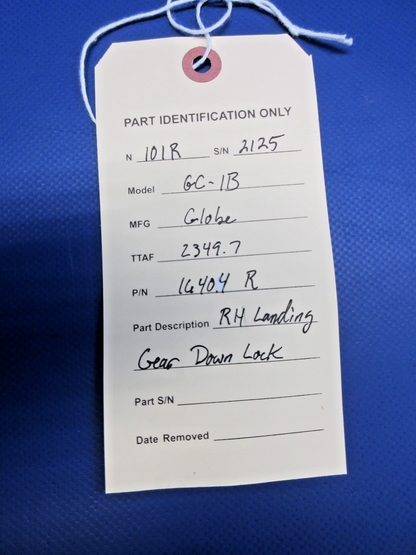 PART IDENTIFICATION ONLY
N 101R S/N 2125
Model GC-1B
MFG Globe
TTAF 2349.7
P/N 1640.4 R
Part Description RH Landing
Gear Down Lock
Part S/N
Date Removed